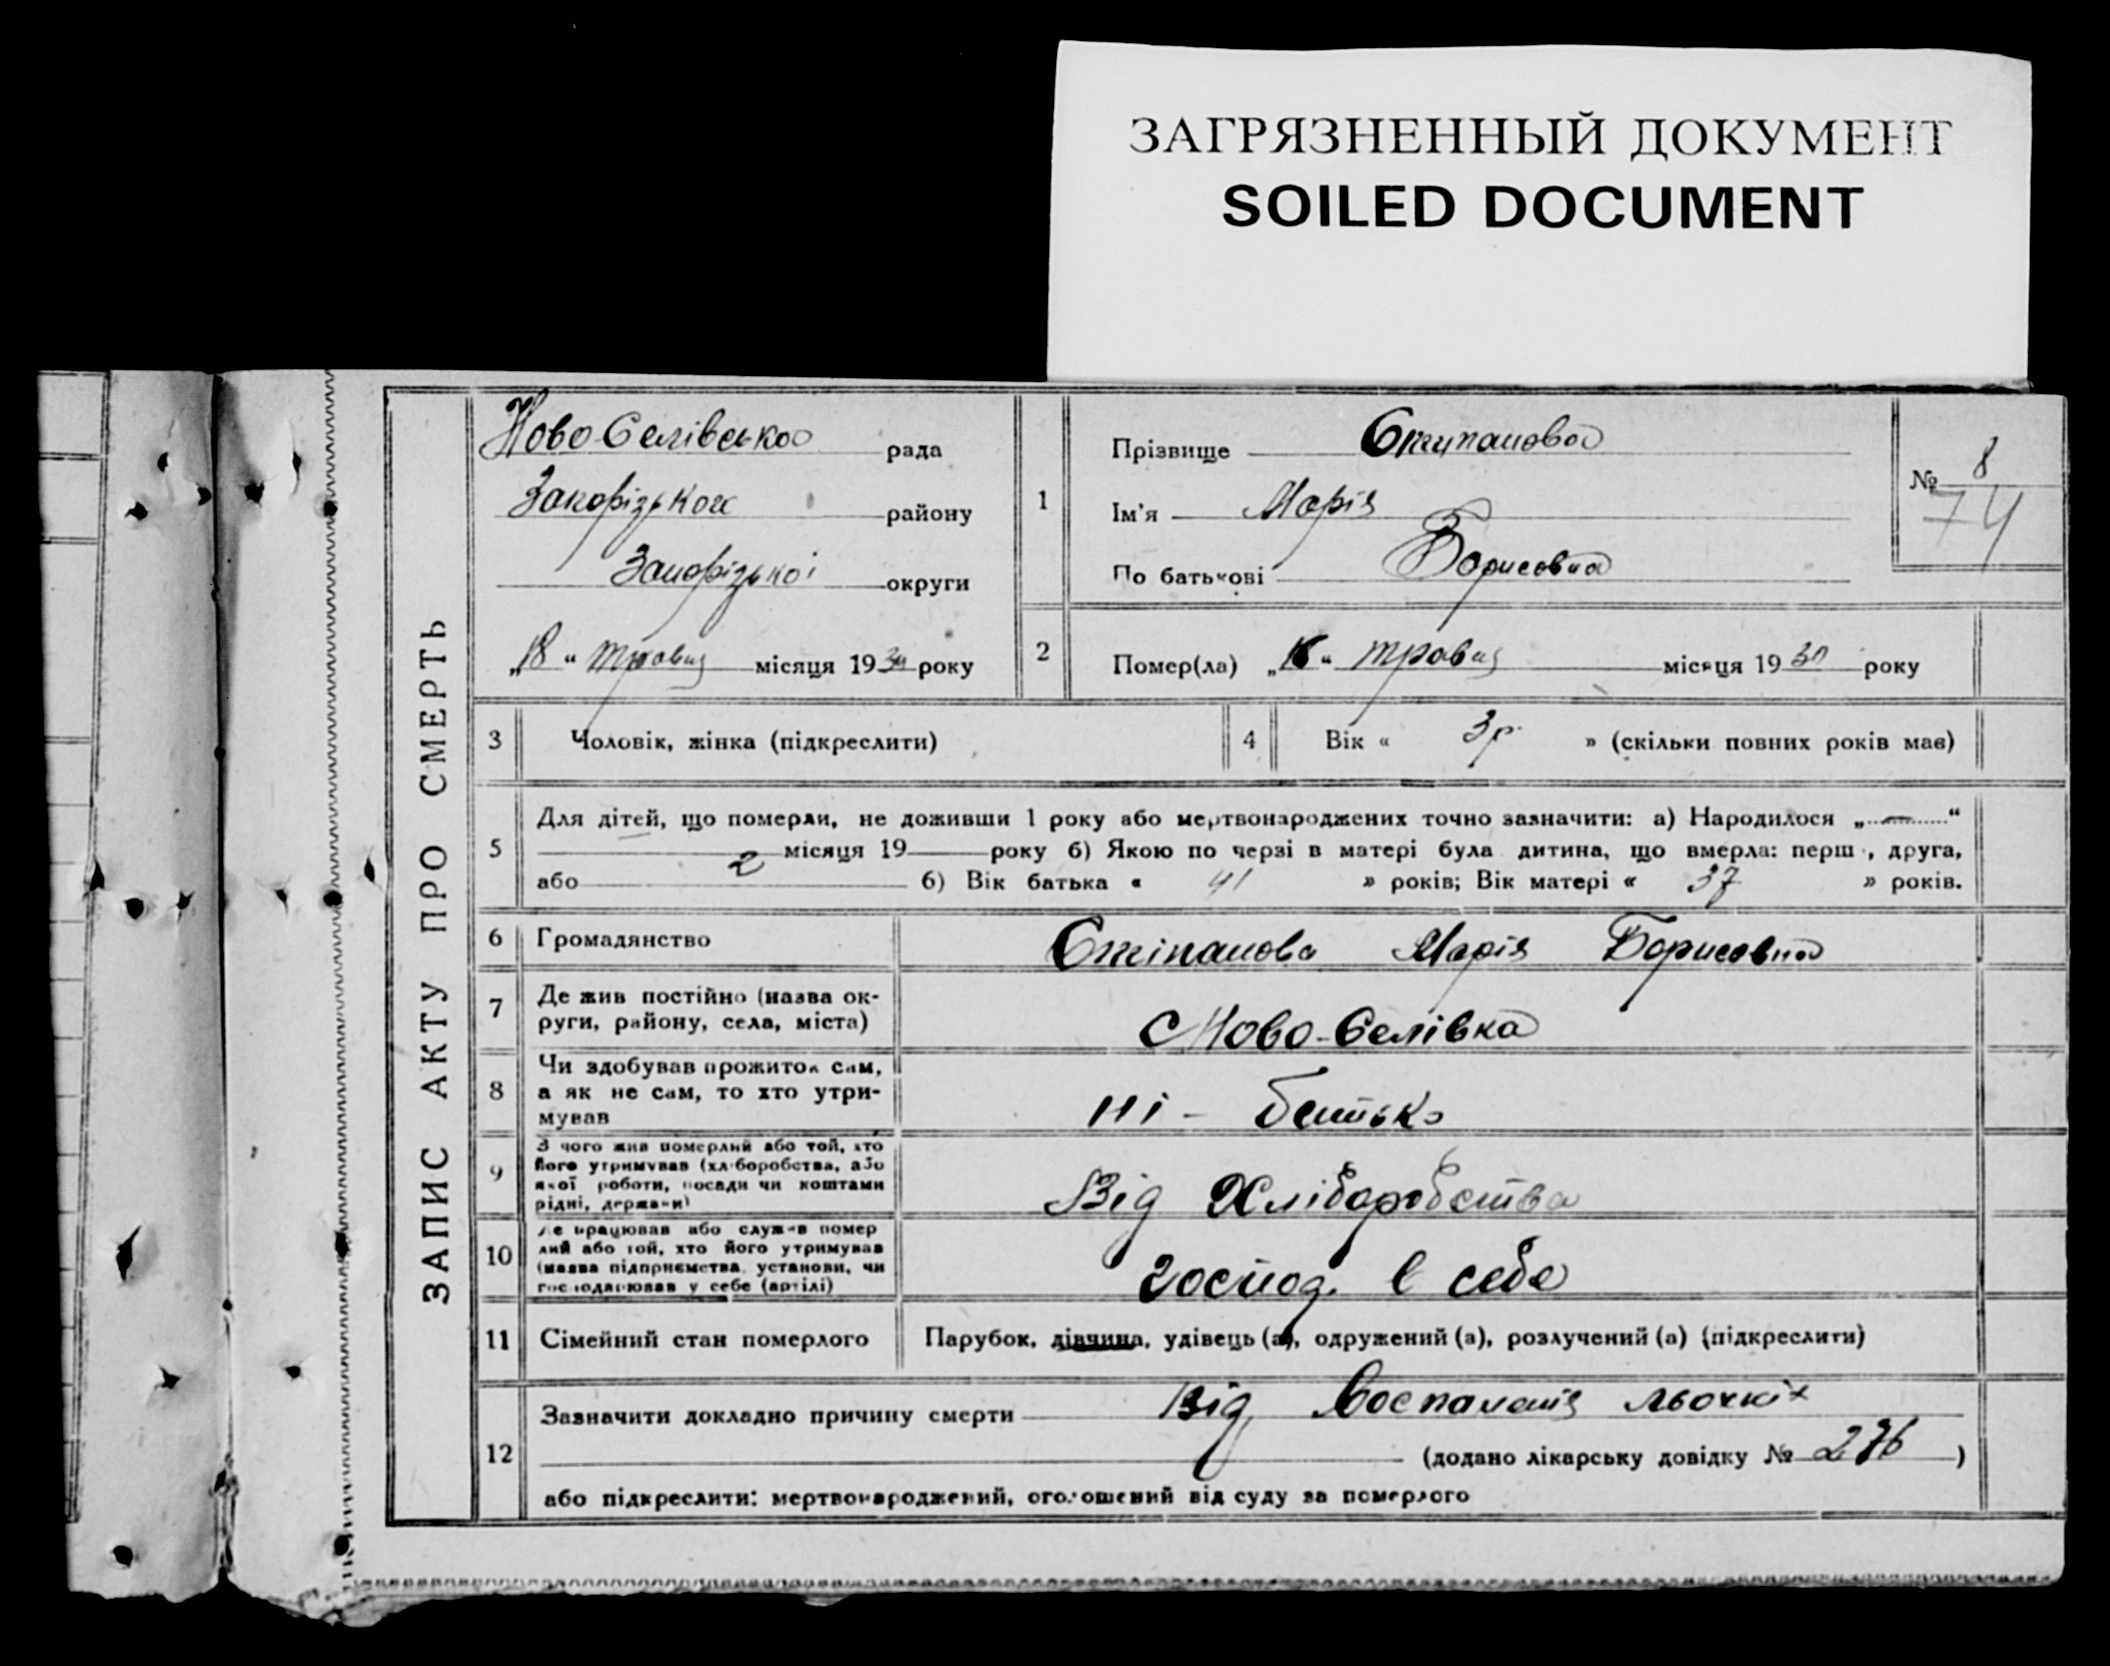 ЗАГРЯЗНЕННЫЙ ДОКУМЕНТ
SOILED DOCUMENT
ЗАПИС АКТУ ПРО СМЕРТЬ
Ново-Селівська рада
Запорізького району
Запорізької округи
„18“ травня місяця 1930 року
1
Прізвище Ступанова
Ім'я Марія
По батькові Борисовна
№ 8
74
2
Помер(ла) „16“ травня місяця 1930 року
3 Чоловік, жінка (підкреслити)
4 Вік « 3 р. » (скільки повних років має)
5 Для дітей, що померли, не доживши 1 року або мертвонароджених точно зазначити: а) Народилося „—“
місяця 19 року б) Якою по черзі в матері була дитина, що вмерла: перша, друга,
або 2 б) Вік батька « 41 » років; Вік матері « 37 » років.
6 Громадянство Стіпанова Марія Борисовна
7 Де жив постійно (назва ок-
руги, району, села, міста)
С Ново-Селівка
8 Чи здобував прожиток сам,
а як не сам, то хто утри-
мував
ні - батько
9 З чого жив померлий або той, хто
його утримував (хліборобства, або
якої роботи, посади чи коштами
рідні, держави)
Від Хліборобства
10 Де працював або служив помер
лий або той, хто його утримував
(назва підприємства, установи, чи
господарював у себе (артілі)
господ. в себе
11 Сімейний стан померлого Парубок, дівчина, удівець (а), одружений (а), розлучений (а) (підкреслити)
12 Зазначити докладно причину смерти Від Воспаления льочкіх
(додано лікарську довідку № 276)
або підкреслити: мертвонароджений, оголошений від суду за померлого